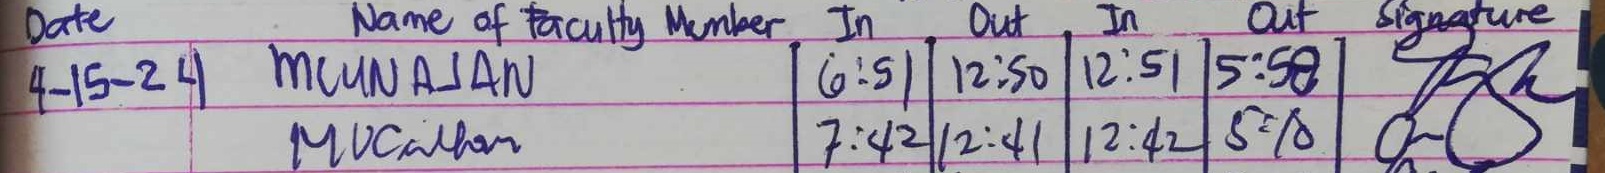 Date Name of Faculty Member In Out In Out Signature
4-15-24 MCUNAJAN 6:51 12:50 12:51 5:58
7:42 12:41 12:42 5:10